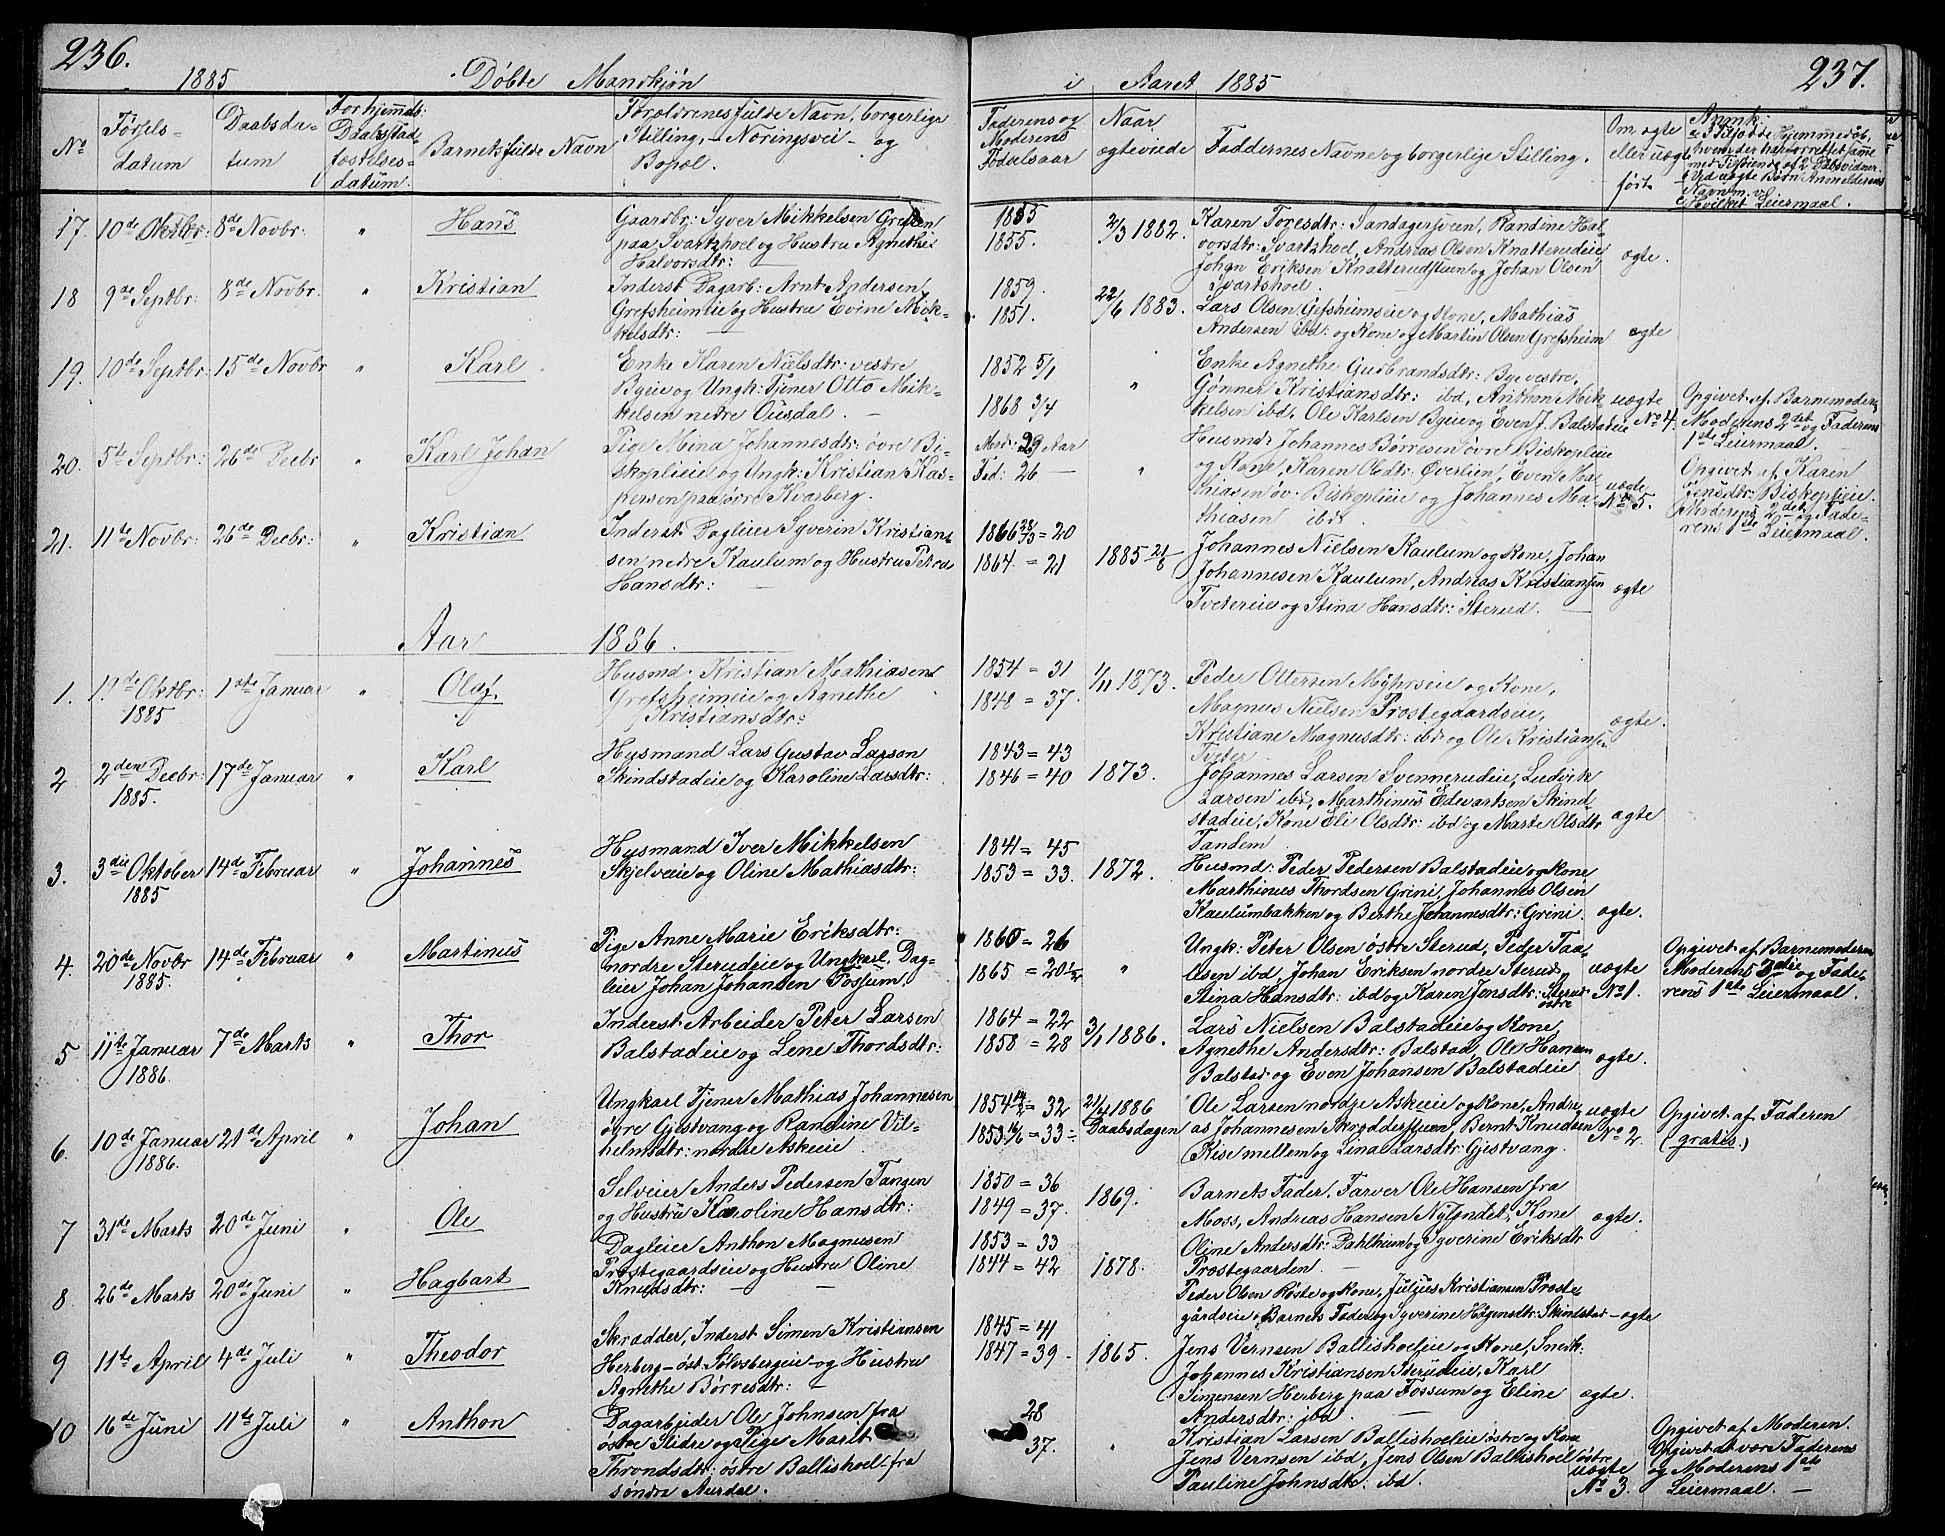 236.
1885 Döbte Mandkjøn
No
Førsels-
datum
Daabsda-
tum
Forhjemds:
Daabsstad-
fæstelses-
datum.
Barnets fulde Navn
Forældrenes fulde Navn, borgerlige
Stilling, - Næringsvei - og
Bopæl.
17. 10de Oktbr: 8de Novbr: " Hans
Gaardbr: Syver Mikkelsen
paa Svartshoel og Hustru Agnethe
Halvorsdtr:
18 9de Septbr: 8de Novbr. " Kristian
Inderst Dagarb: Arnt Andersen
Grefsheimeie og Hustru Evine Mik-
kelsdtr:
19. 10de Septbr: 15de Novbr " Karl
Enke Karen Nielsdtr: vestre
Byeie og Ungk: Tjener Otto Mik-
kelsen nedre Ousdal. -
20. 5te Septbr: 26de Decbr " Karl Johan
Pige Mina Johannesdtr: övre Bi-
skoplieie og Ungk: Kristian Kas-
persen paa övre Kvarberg.
21. 11te Novbr: 26de Decbr: " Kristian
Inderst Dagleier Syverin Kristian-
sen nedre Kaulum og Hustru Petrea
Hansdtr:
Aar 1886.
1. 19de Oktbr: 1885 1ste Januar " Olaf.
Husmd. Kristian Mathiasen
Grefsheimeie og Agnethe
Kristiansdtr:
2 2den Decbr: 1885. 17de Januar " Karl
Husmand Lars Gustav Larson
Skindstadeie og Karoline Larsdtr:
3. 3die Oktober 1885 14de Februar " Johannes
Husmand Iver Mikkelsen
Skjelveie og Oline Mathiasdtr:
4. 20de Novbr 1885. 14de Februar " Martinus
Pige Anne Marie Eriksdtr:
nordre Sterudeie og Ungkarl, Dag-
leier Johan Johansen Fossum.
5 11te Januar 1886. 7de Marts " Thor
Inderst Arbeider Peter Larsen
Balstadeie og Lene Thordsdtr:
6. 10de Januar 1886. 21de April " Johan
Ungkarl Tjener Mathias Johannesen
övre Gjestvang og Randine Vil-
helmsdtr: nordre Askeie.
7 31de Marts 20de Juni " Ole
Selveier Anders Pedersen Tangen
og Hustru Karoline Hansdtr:
8 26de Marts 20de Juni " Hagbart
Dagleier Anthon Magnusen
Præstegaardseie og Hustru Oline
Knudsdtr: -
9 11te April 4de Juli " Theodor
Skrædder, Inderst Simen Kristiansen
Herberg - öst. Sølvsbergeie - og Hustru
Agnethe Börresdtr: -
10 16de Juni 11te Juli " Anthon
Dagarbeider Ole Johnsen fra
østre Slidre og Pige Marit
Throndsdtr: østre Ballishoel fra
söndre Aurdal.
237.
i Aaret 1885
Faderens og
Moderens
Fødselsaar
Naar
ægteviede
Faddernes Navne og borgerlige Stilling.
Om ægte
eller uægte
født
Anmk:
hvem der har forrettet samme
med Tilsiende af 2 Daabsvidner.
Ved uægte Børn Anmelderens
Navn m. v.
Hvilket Leiermaal.
1855
1855.
2/3 1882.
Karen Toresdtr: Sandagersveen, Randine Hal-
vorsdtr: Svartshoel, Andreas Olsen Knatterudeie
Johan Eriksen Knatterudstuen og Johan Olsen
Svartshoel.
ægte.
1859.
1851.
22/6 1883.
Lars Olsen Grefsheimseie og Kone, Mathias
Andersen ibd: og Kone og Martin Olsen Grefsheim
ægte
1852 5/1
1868 3/4
"
Enke Agnethe Gudbrandsdtr: Bye vestre,
Gønner Kristiansdtr: ibd, Anthon Mik-
kelsen ibd, Ole Karlsen Byeie og Even J. Balstadeie
uægte
No 4.
Opgivet af Barnemoderen
Moderens 2det og Faderens
1ste Leiermaal.
Mod: 29 Aar
Fad: 26 -
"
Husmd: Johannes Børresen øvre Biskoplieie
og Kone, Karen Olsdtr: Øverlien, Even Ma-
thiasen øv. Biskoplieie og Johannes Ma-
thiasen ibd.
uægte
No 5.
Opgivet af Karen
Jensdtr: Biskoplieie.
Moderens 2det og Fade-
rens 1ste Leiermaal.
1866 28/3 = 20
1864 = 21
1885 21/6
Johannes Nielsen Kaulum og Kone, Johan
Johannesen Kaulum, Andreas Kristiansen
Tvetereie og Stina Hansdtr: Sterud.
ægte
1854 = 31
1848 = 37.
1/11 1873.
Peder Ottersen Myhrseie og Kone,
Magnus Nielsen Prostegaardseie,
Kristiane Magnusdtr: ibd og Ole Kristiansen
Tveter
ægte.
1843 = 43
1846 = 40
1873.
Johannes Larsen Svennerudeie, Ludvik
Larsen ibd, Marthinus Edvartsen Skind-
stadeie, Kone Eli Olsdtr: ibd og Marte Olsdtr
Tandem
ægte
1841 = 45
1853 = 33.
1872.
Husmd: Peder Pedersen Balstadeie og Kone
Marthinus Thordsen Grini, Johannes Olsen
Kaulumbakken og Berthe Johannesdtr: Grini.
ægte.
1860 = 26
1865 = 20 1/2
"
Ungk: Peter Olsen østre Sterud, Peder Paa-
lsen ibd, Johan Eriksen nordre Sterud
Stina Hansdtr: ibd og Karen Jensdtr: Sterud
østre
uægte
No 1.
Opgivet af Barnemoderen
Moderens 3die og Fade-
rens 1ste Leiermaal.
1864 = 22
1858 = 28
3/1 1886.
Lars Nielsen Balstadeie og Kone,
Agnethe Andersdtr: Balstad, Ole Hansen
Balstad og Even Johansen Balstadeie
ægte.
1854 = 32
1853 = 33 =
21/4 1886
Daabsdagen
Ole Larsen nordre Askeie og Kone, Andre-
as Johannesen Skrædderstuen, Bernt Knudsen
Kise mellem og Lina Larsdtr: Gjestvang.
uægte
No 2.
Opgivet af Faderen
(gratis.)
1850 = 36
1849 = 37.
1869.
Barnets Fader, Farver Ole Hansen fra
Moss, Andreas Hansen Nylændet, Kone
Oline Andersdtr: Dahlheim og Syverine Eriksdtr
Præstegaarden.
ægte.
1853 = 33
1844 = 42
1878.
Peder Olsen Röste og Kone, Julius Kristiansen Præste-
gårdseie, Barnets Fader og Syverine Hågensdtr: Skindstad -
ægte
1845 = 41
1847 = 39.
1865.
Jens Vernsen Ballishoeleie og Kone, Snedk:
Johannes Kristiansen Sterudeie, Karl
Simensen Herberg paa Fossum og Eline
Andersdtr: ibd.
ægte.
28
37.
"
Kristian Larsen Ballishoeleie østre og Kone
Jens Vernsen ibd, Jens Olsen Ballishoel østre
Pauline Johnsdtr. ibd.
uægte
No 3.
Opgivet af Moderen.
Opgivet at være Faderens
og Moderens 1ste
Leiermaal. -